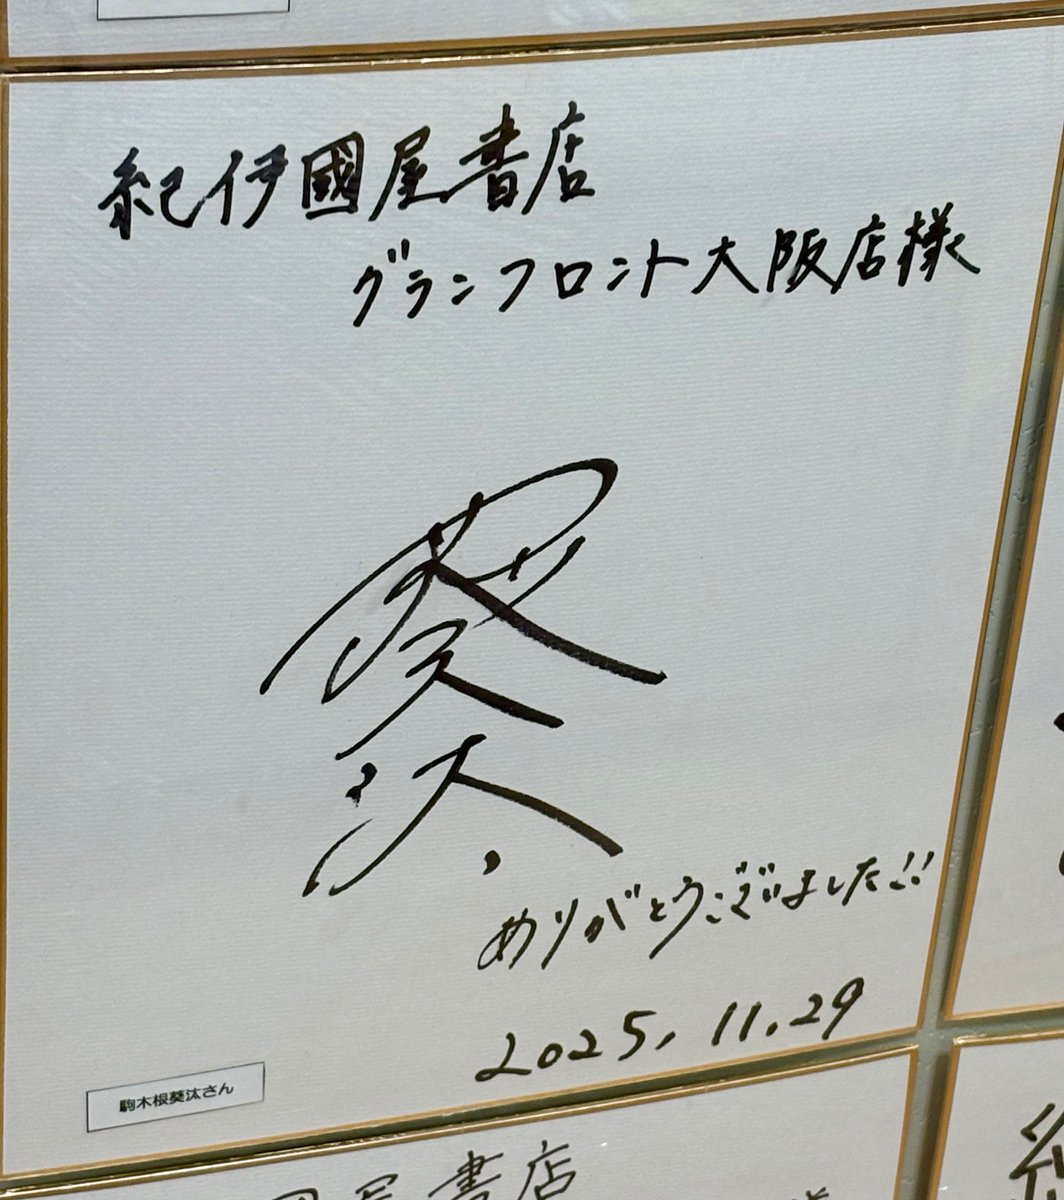 紀伊國屋書店
グランフロント大阪店様
葵汰
ありがとうございました!!
2025.11.29
駒木根葵汰さん
屋書店